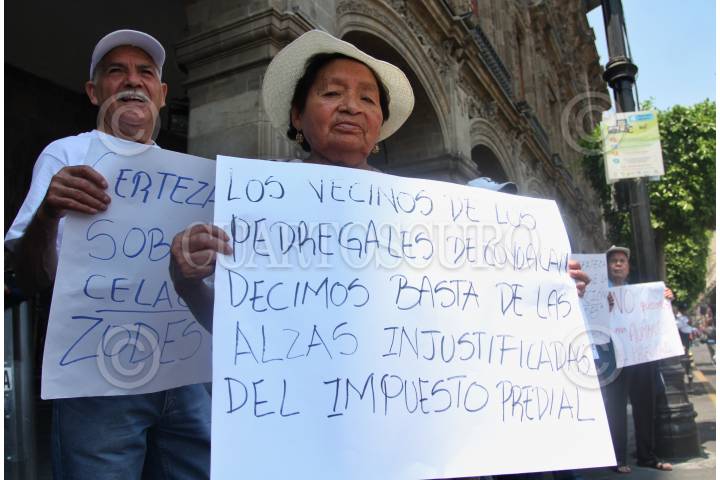 CERTEZA
SOB
CELA
ZODES
LOS VECINOS DE LOS
PEDREGALES DE COYOACAN
DECIMOS BASTA DE LAS
ALZAS INJUSTIFICADAS
DEL IMPUESTO PREDIAL
NO
CUARTOSCURO